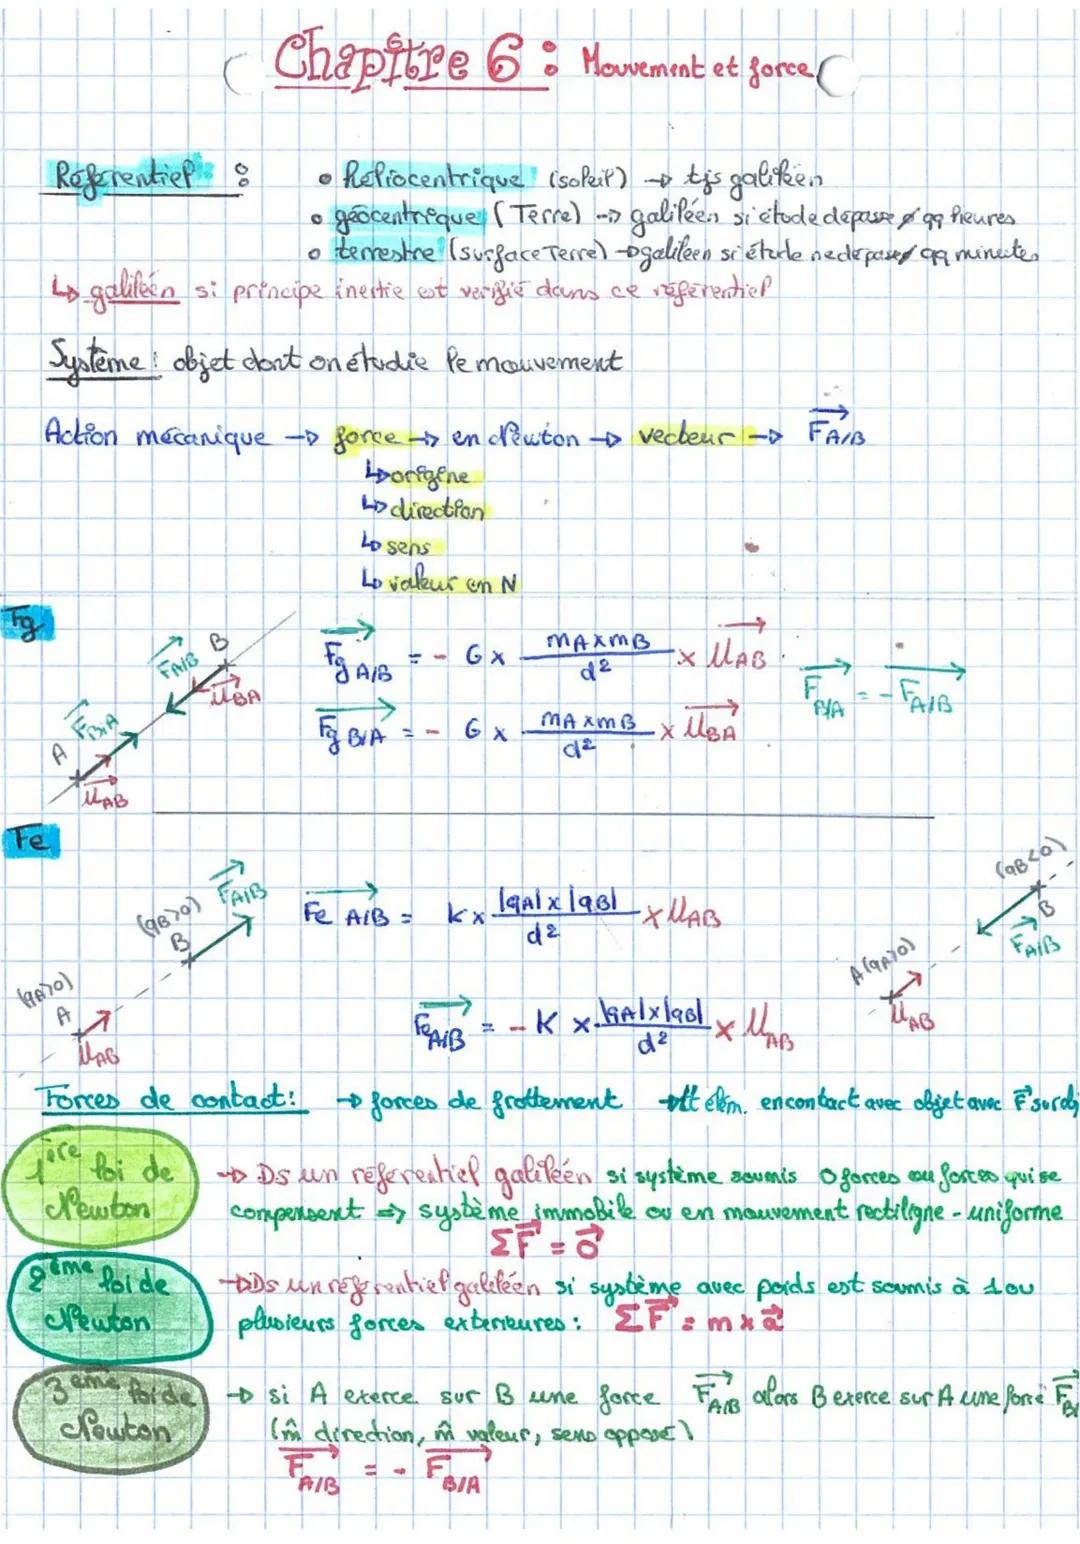 Chapitre 6 : Mouvement et force
Référentiel :
• héliocentrique (soleil) → tjs galiléen
• géocentrique (Terre) → galiléen si étude dépasse ø qq heures
• terrestre (surface Terre) → galiléen si étude ne dépasse qq minutes
↳ galiléen si principe inertie est vérifié dans ce référentiel
Système : objet dont on étudie le mouvement
Action mécanique → force → en Newton → vecteur → F A/B
↳ origine
↳ direction
↳ sens
↳ valeur en N
Fg
A F B/A U AB
B F A/B U BA
Fg A/B = - G x mA x mB / d² x U AB
Fg B/A = - G x mA x mB / d² x U BA
F B/A = - F A/B
Fe
(qA>0) A U AB
(qB>0) B F A/B
Fe A/B = k x |qA| x |qB| / d² x U AB
Fe A/B = - K x |qA| x |qB| / d² x U AB
A (qA>0) U AB
(qB<0) B F A/B
Forces de contact : → forces de frottement → tt élém. en contact avec objet avec F sur obj
1ère loi de Newton
→ Ds un référentiel galiléen si système soumis 0 forces ou forces qui se
compensent => système immobile ou en mouvement rectiligne - uniforme
ΣF = 0
2ème loi de Newton
→ Ds un référentiel galiléen si système avec poids est soumis à 1 ou
plusieurs forces extérieures : ΣF = m x a
3ème loi de Newton
→ si A exerce sur B une force F A/B alors B exerce sur A une force F B/
(m̂ direction, m̂ valeur, sens opposé)
F A/B = - F B/A